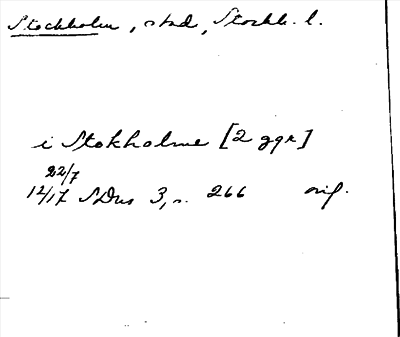 Stockholm, stad, Stockh. l.
i Stokholme [2 ggr]
22/7
12/17 SDns 3, s. 266 orig.